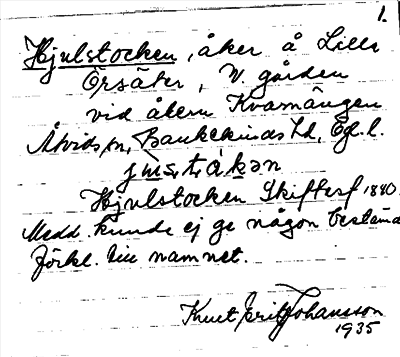 1.
Hjulstocken, åker å Lilla
Örsäter, V. gården
vid åkern Kvarnängen
Åtvids sn, Bankekinds hd, Ögl. l.
Hjulstocken Skiftesf 1880
Medd. kunde ej ge någon bestämd
förkl. till namnet.
Knut Erik Johansson
1935